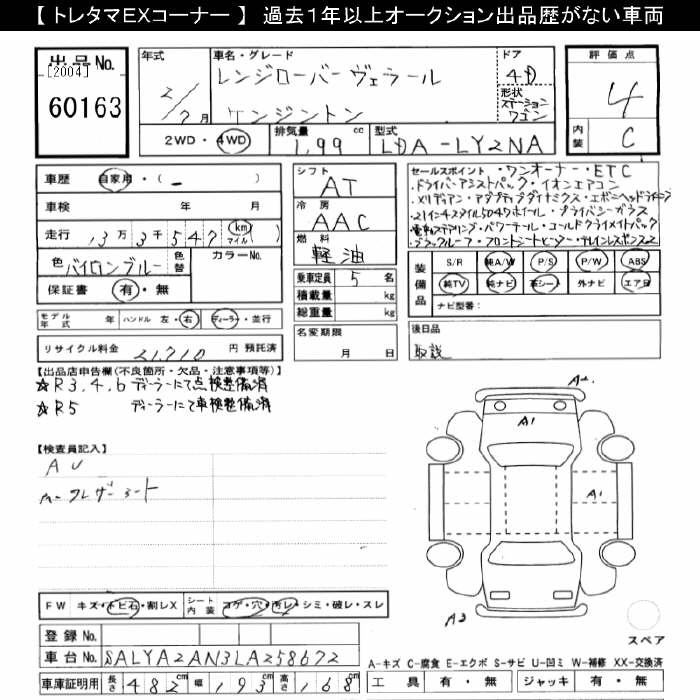 【 トレタマEXコーナー 】 過去1年以上オークション出品歴がない車両
出品No.
[2004]
60163
年式
2/7月
車名・グレード
レンジローバー ヴェラール
ケンジントン
ドア
4D
形状
ステーション
ワゴン
2WD・4WD
排気量
1,99 cc
型式
LDA-LY2NA
評価点
4
内装
C
車歴 自家用・( - )
車検 年 月
走行 13万3千547 km マイル ( )
色 バイロンブルー 色替 カラーNo.
保証書 有・無
シフト
AT
冷房
AAC
燃料
軽油
乗車定員 5 名
積載量 kg
総重量 kg
名変期限
月 日
セールスポイント ・ワンオーナー・ETC
・ドライバーアシストパック・イオンエアコン
・メリディアン・アダプティブダイナミクス・エボニーヘッドライニング
・21インチ5スポークホイール・プライバシーガラス
電動ステアリング・パワーテール・コールドクライメイトパック
・ブラックルーフ・フロントシートヒーター・テレインレスポンス2
装備品
S/R 純A/W P/S P/W ABS
純TV 純ナビ 革シート 外ナビ エアB
ナビ型番:
モデル年式 年 ハンドル 左・右 ディーラー・並行
リサイクル料金 21,710 円 預託済
後日品
取説
【出品店申告欄(不良箇所・欠品・注意事項等)】
☆R3,4,6 ディーラーにて点検整備済
☆R5 ディーラーにて車検整備済
【検査員記入】
AU
レザーシート
A2
A1
A1
A2
スペア
FW キズ・トビ石・割レX シート内装 コゲ・穴・汚レ・シミ・破レ・スレ
登録No.
車台No. SALYA2AN3LA258672
車庫証明用 長さ 482cm 幅 193cm 高さ 168cm
A-キズ C-腐食 E-エクボ S-サビ U-凹ミ W-補修 XX-交換済
工具 有・無 ジャッキ 有・無